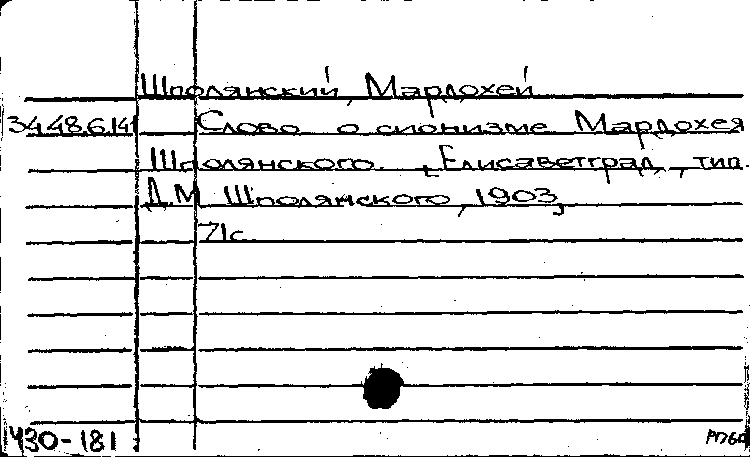 Шполянский, Мардохей
34.48.6.141 Слово о сионизме Мардохея
Шполянского. [Елисаветград, тип.
Д.М. Шполянского, 1903]
71с.
Ч30-181